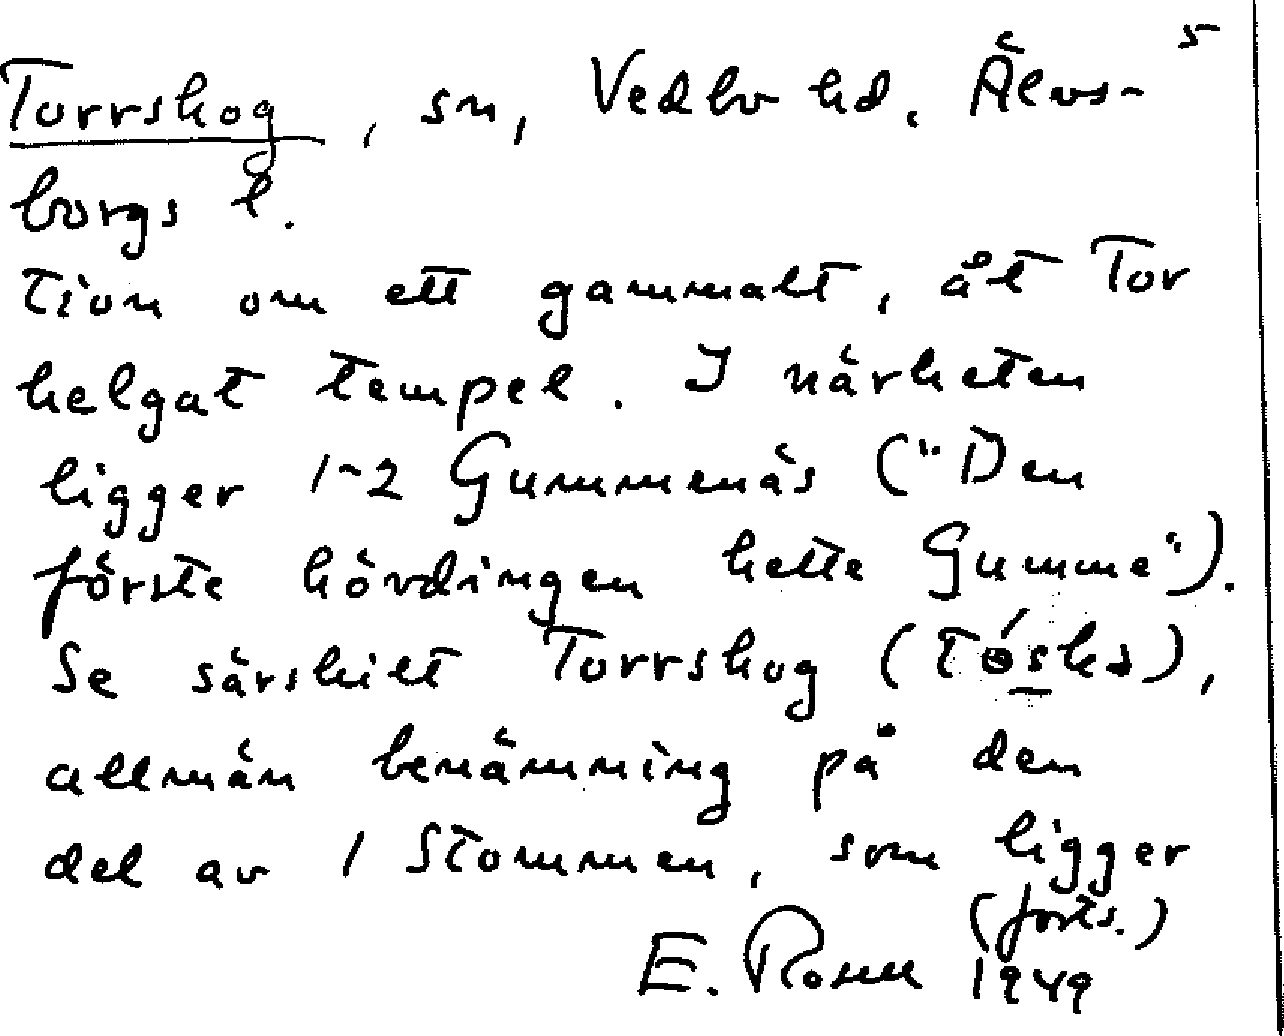 5
Torrskog, sn, Vedbo hd. Älvs-
borgs l.
tion om ett gammalt, åt Tor
helgat tempel. I närheten
ligger 1-2 Gummenäs ("Den
förste hövdingen hette Gumme").
Se särskilt Torrskog (
allmän benämning på den
del av 1 Stommen, som ligger
(forts.)
E. Rosell 1949